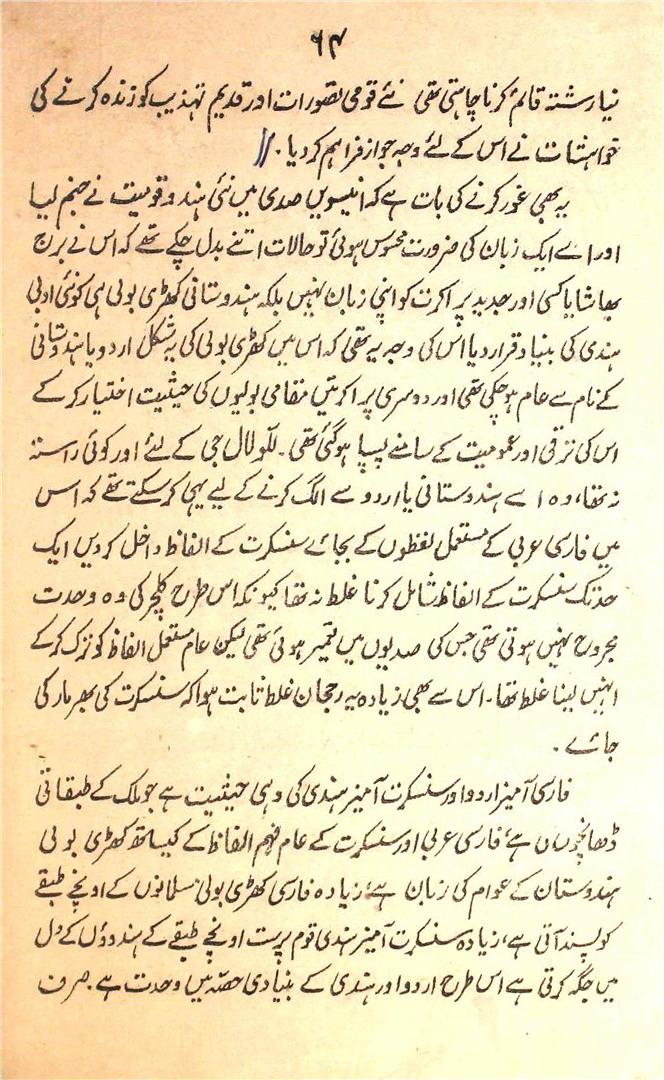 ۶۴
نیا رشتہ قائم کرنا چاہتی تھی نئے قومی تصورات اور قدیم تہذیب کو زندہ کرنے کی
خواہشات نے اس کے لئے وجہ جواز فراہم کر دیا۔
یہ بھی غور کرنے کی بات ہے کہ انیسویں صدی میں نئی ہندو قومیت نے جنم لیا
اور اسے ایک زبان کی ضرورت محسوس ہوئی تو حالات اتنے بدل چکے تھے کہ اس نے برج
بھاشا یا کسی اور جدید پراکرت کو اپنی زبان نہیں بلکہ ہندوستانی کھڑی بولی ہی کو نئی ادبی
ہندی کی بنیاد قرار دیا اس کی وجہ یہ تھی کہ اس میں کھڑی بولی کی یہ شکل اردو یا ہندوستانی
کے نام سے عام ہو چکی تھی اور دوسری پراکرتیں مقامی بولیوں کی حیثیت اختیار کر کے
اس کی ترقی اور عمومیت کے سامنے پسپا ہو گئی تھی۔ للو لال جی کے لئے اور کوئی راستہ
نہ تھا، وہ اسے ہندوستانی یا اردو سے الگ کرنے کے لیے یہی کر سکتے تھے کہ اس
میں فارسی عربی کے مستعمل لفظوں کے بجائے سنسکرت کے الفاظ داخل کر دیں ایک
حد تک سنسکرت کے الفاظ شامل کرنا غلط نہ تھا کیونکہ اس طرح کلچر کی وہ وحدت
مجروح نہیں ہوتی تھی جس کی صدیوں میں تعمیر ہوئی تھی لیکن عام مستعمل الفاظ کو ترک کر کے
انہیں لینا غلط تھا۔ اس سے بھی زیادہ یہ رجحان غلط ثابت ہوا کہ سنسکرت کی بھرمار کی
جائے۔
فارسی آمیز اردو اور سنسکرت آمیز ہندی کی وہی حیثیت ہے جو ملک کے طبقاتی
ڈھانچوں ہے، فارسی عربی اور سنسکرت کے عام فہم الفاظ کے کیساتھ کھڑی بولی
ہندوستان کے عوام کی زبان ہے، زیادہ فارسی کھڑی بولی مسلمانوں کے اونچے طبقے
کو پسند آتی ہے، زیادہ سنسکرت آمیز ہندی قوم پرست اونچے طبقے کے ہندوؤں کے دل
میں جگہ کرتی ہے اس طرح اردو اور ہندی کے بنیادی حصّہ میں وحدت ہے۔ صرف